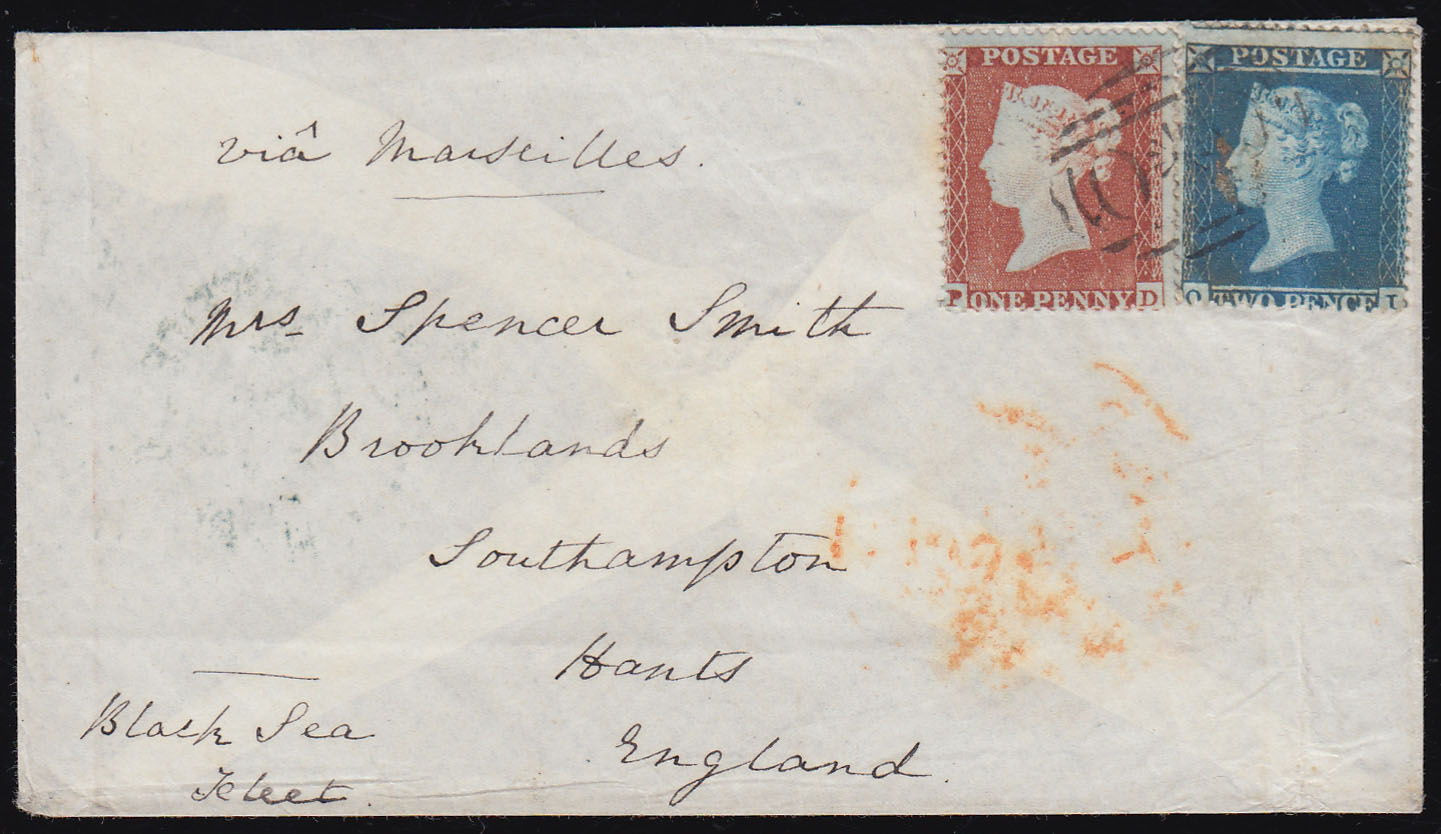 POSTAGE
POSTAGE
viâ Marseilles.
P ONE PENNY D
TWO PENCE
Mrs Spencer Smith
Brooklands
Southampton
Hants
England.
Black Sea
Fleet.